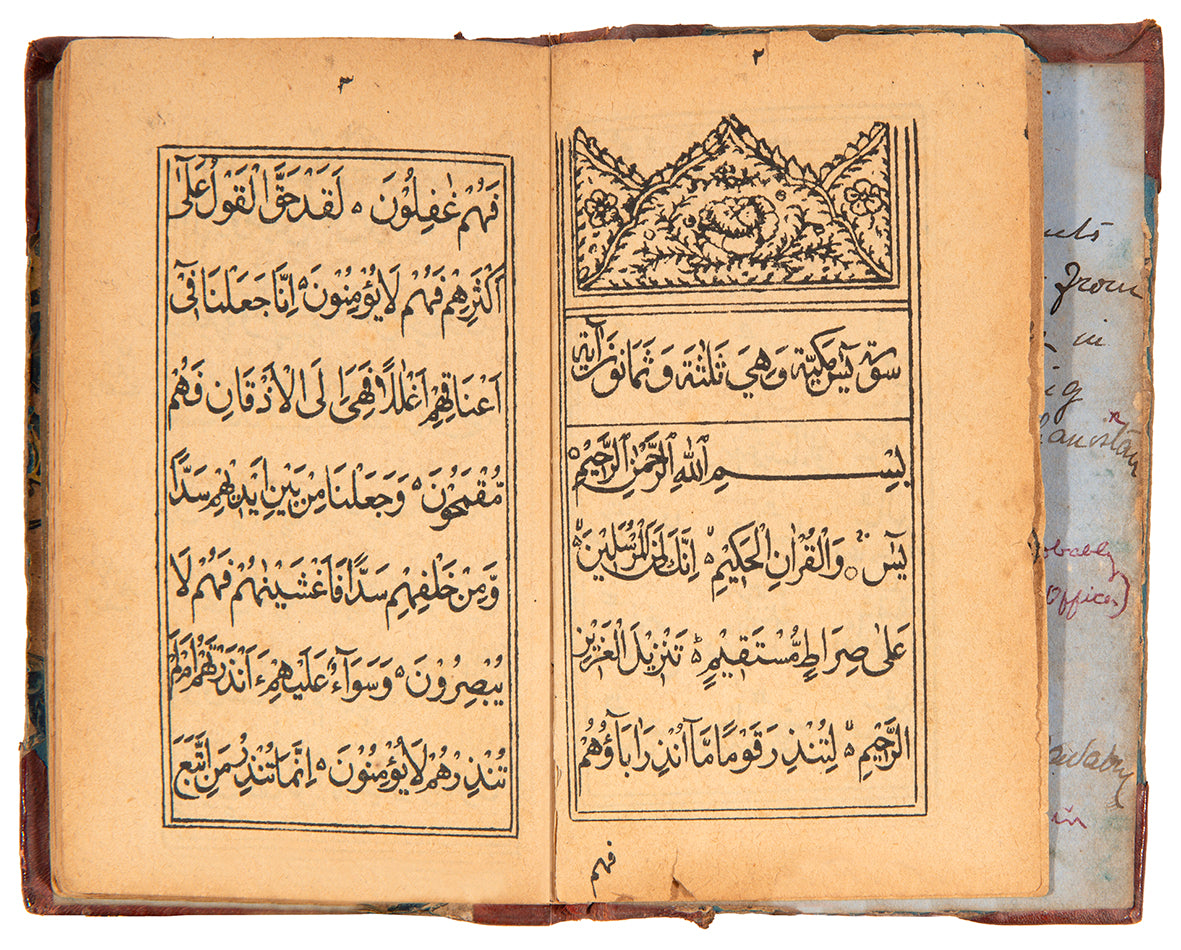 ٢
سورة يٓسٓ مَكِّيَّة وَهِيَ ثَلٰثَة وَثَمَانُوْنَ اٰيَة
بِسْمِ ٱللّٰهِ ٱلرَّحْمٰنِ ٱلرَّحِيْمِ
يٰٓسٓ وَالْقُرْاٰنِ الْحَكِيْمِ اِنَّكَ لَمِنَ الْمُرْسَلِيْنَ
عَلٰى صِرَاطٍ مُّسْتَقِيْمٍ تَنْزِيْلَ الْعَزِيْزِ
الرَّحِيْمِ لِتُنْذِرَ قَوْمًا مَّآ اُنْذِرَ اٰبَآؤُهُمْ
فهم
٣
فَهُمْ غٰفِلُوْنَ لَقَدْ حَقَّ الْقَوْلُ عَلٰٓى
اَكْثَرِهِمْ فَهُمْ لَا يُؤْمِنُوْنَ اِنَّا جَعَلْنَا فِيْٓ
اَعْنَاقِهِمْ اَغْلٰلًا فَهِيَ اِلَى الْاَذْقَانِ فَهُمْ
مُّقْمَحُوْنَ وَجَعَلْنَا مِنْۢ بَيْنِ اَيْدِيْهِمْ سَدًّا
وَّمِنْ خَلْفِهِمْ سَدًّا فَاَغْشَيْنٰهُمْ فَهُمْ لَا
يُبْصِرُوْنَ وَسَوَآءٌ عَلَيْهِمْ ءَاَنْذَرْتَهُمْ اَمْ لَمْ
تُنْذِرْهُمْ لَا يُؤْمِنُوْنَ اِنَّمَا تُنْذِرُ مَنِ اتَّبَعَ
from
in
Office)
in